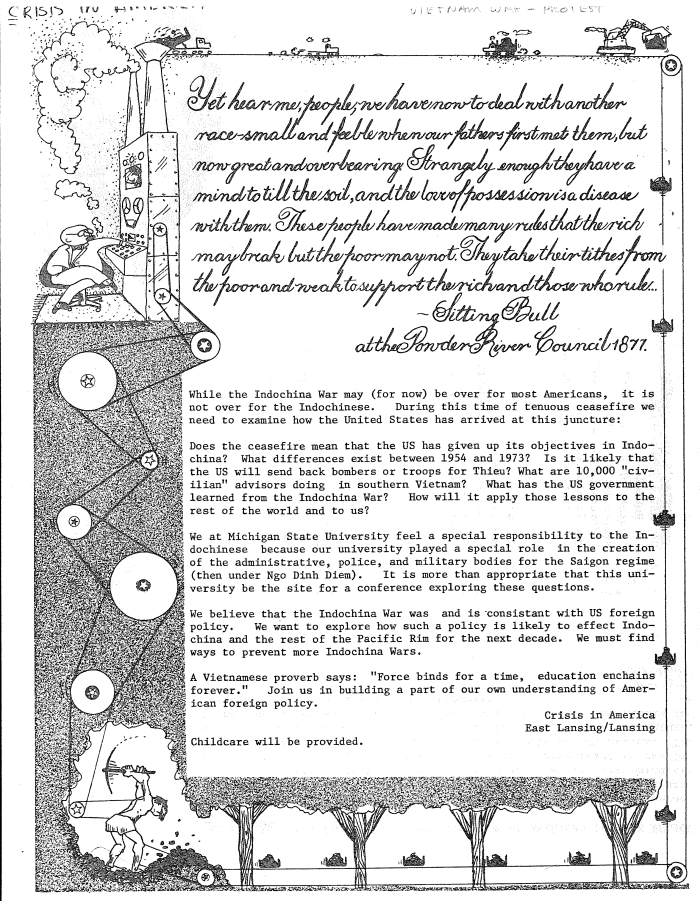 CRISIS IN AMERICA
VIETNAM WAR - PROTEST
Yet hear me, people, we have now to deal with another
race-small and feeble when our fathers first met them, but
now great and overbearing. Strangely enough they have a
mind to till the soil, and the love of possession is a disease
with them. These people have made many rules that the rich
may break but the poor may not. They take their tithes from
the poor and weak to support the rich and those who rule...
~ Sitting Bull
at the Powder River Council 1877.
While the Indochina War may (for now) be over for most Americans, it is
not over for the Indochinese. During this time of tenuous ceasefire we
need to examine how the United States has arrived at this juncture:
Does the ceasefire mean that the US has given up its objectives in Indo-
china? What differences exist between 1954 and 1973? Is it likely that
the US will send back bombers or troops for Thieu? What are 10,000 "civ-
ilian" advisors doing in southern Vietnam? What has the US government
learned from the Indochina War? How will it apply those lessons to the
rest of the world and to us?
We at Michigan State University feel a special responsibility to the In-
dochinese because our university played a special role in the creation
of the administrative, police, and military bodies for the Saigon regime
(then under Ngo Dinh Diem). It is more than appropriate that this uni-
versity be the site for a conference exploring these questions.
We believe that the Indochina War was and is consistant with US foreign
policy. We want to explore how such a policy is likely to effect Indo-
china and the rest of the Pacific Rim for the next decade. We must find
ways to prevent more Indochina Wars.
A Vietnamese proverb says: "Force binds for a time, education enchains
forever." Join us in building a part of our own understanding of Amer-
ican foreign policy.
Crisis in America
East Lansing/Lansing
Childcare will be provided.